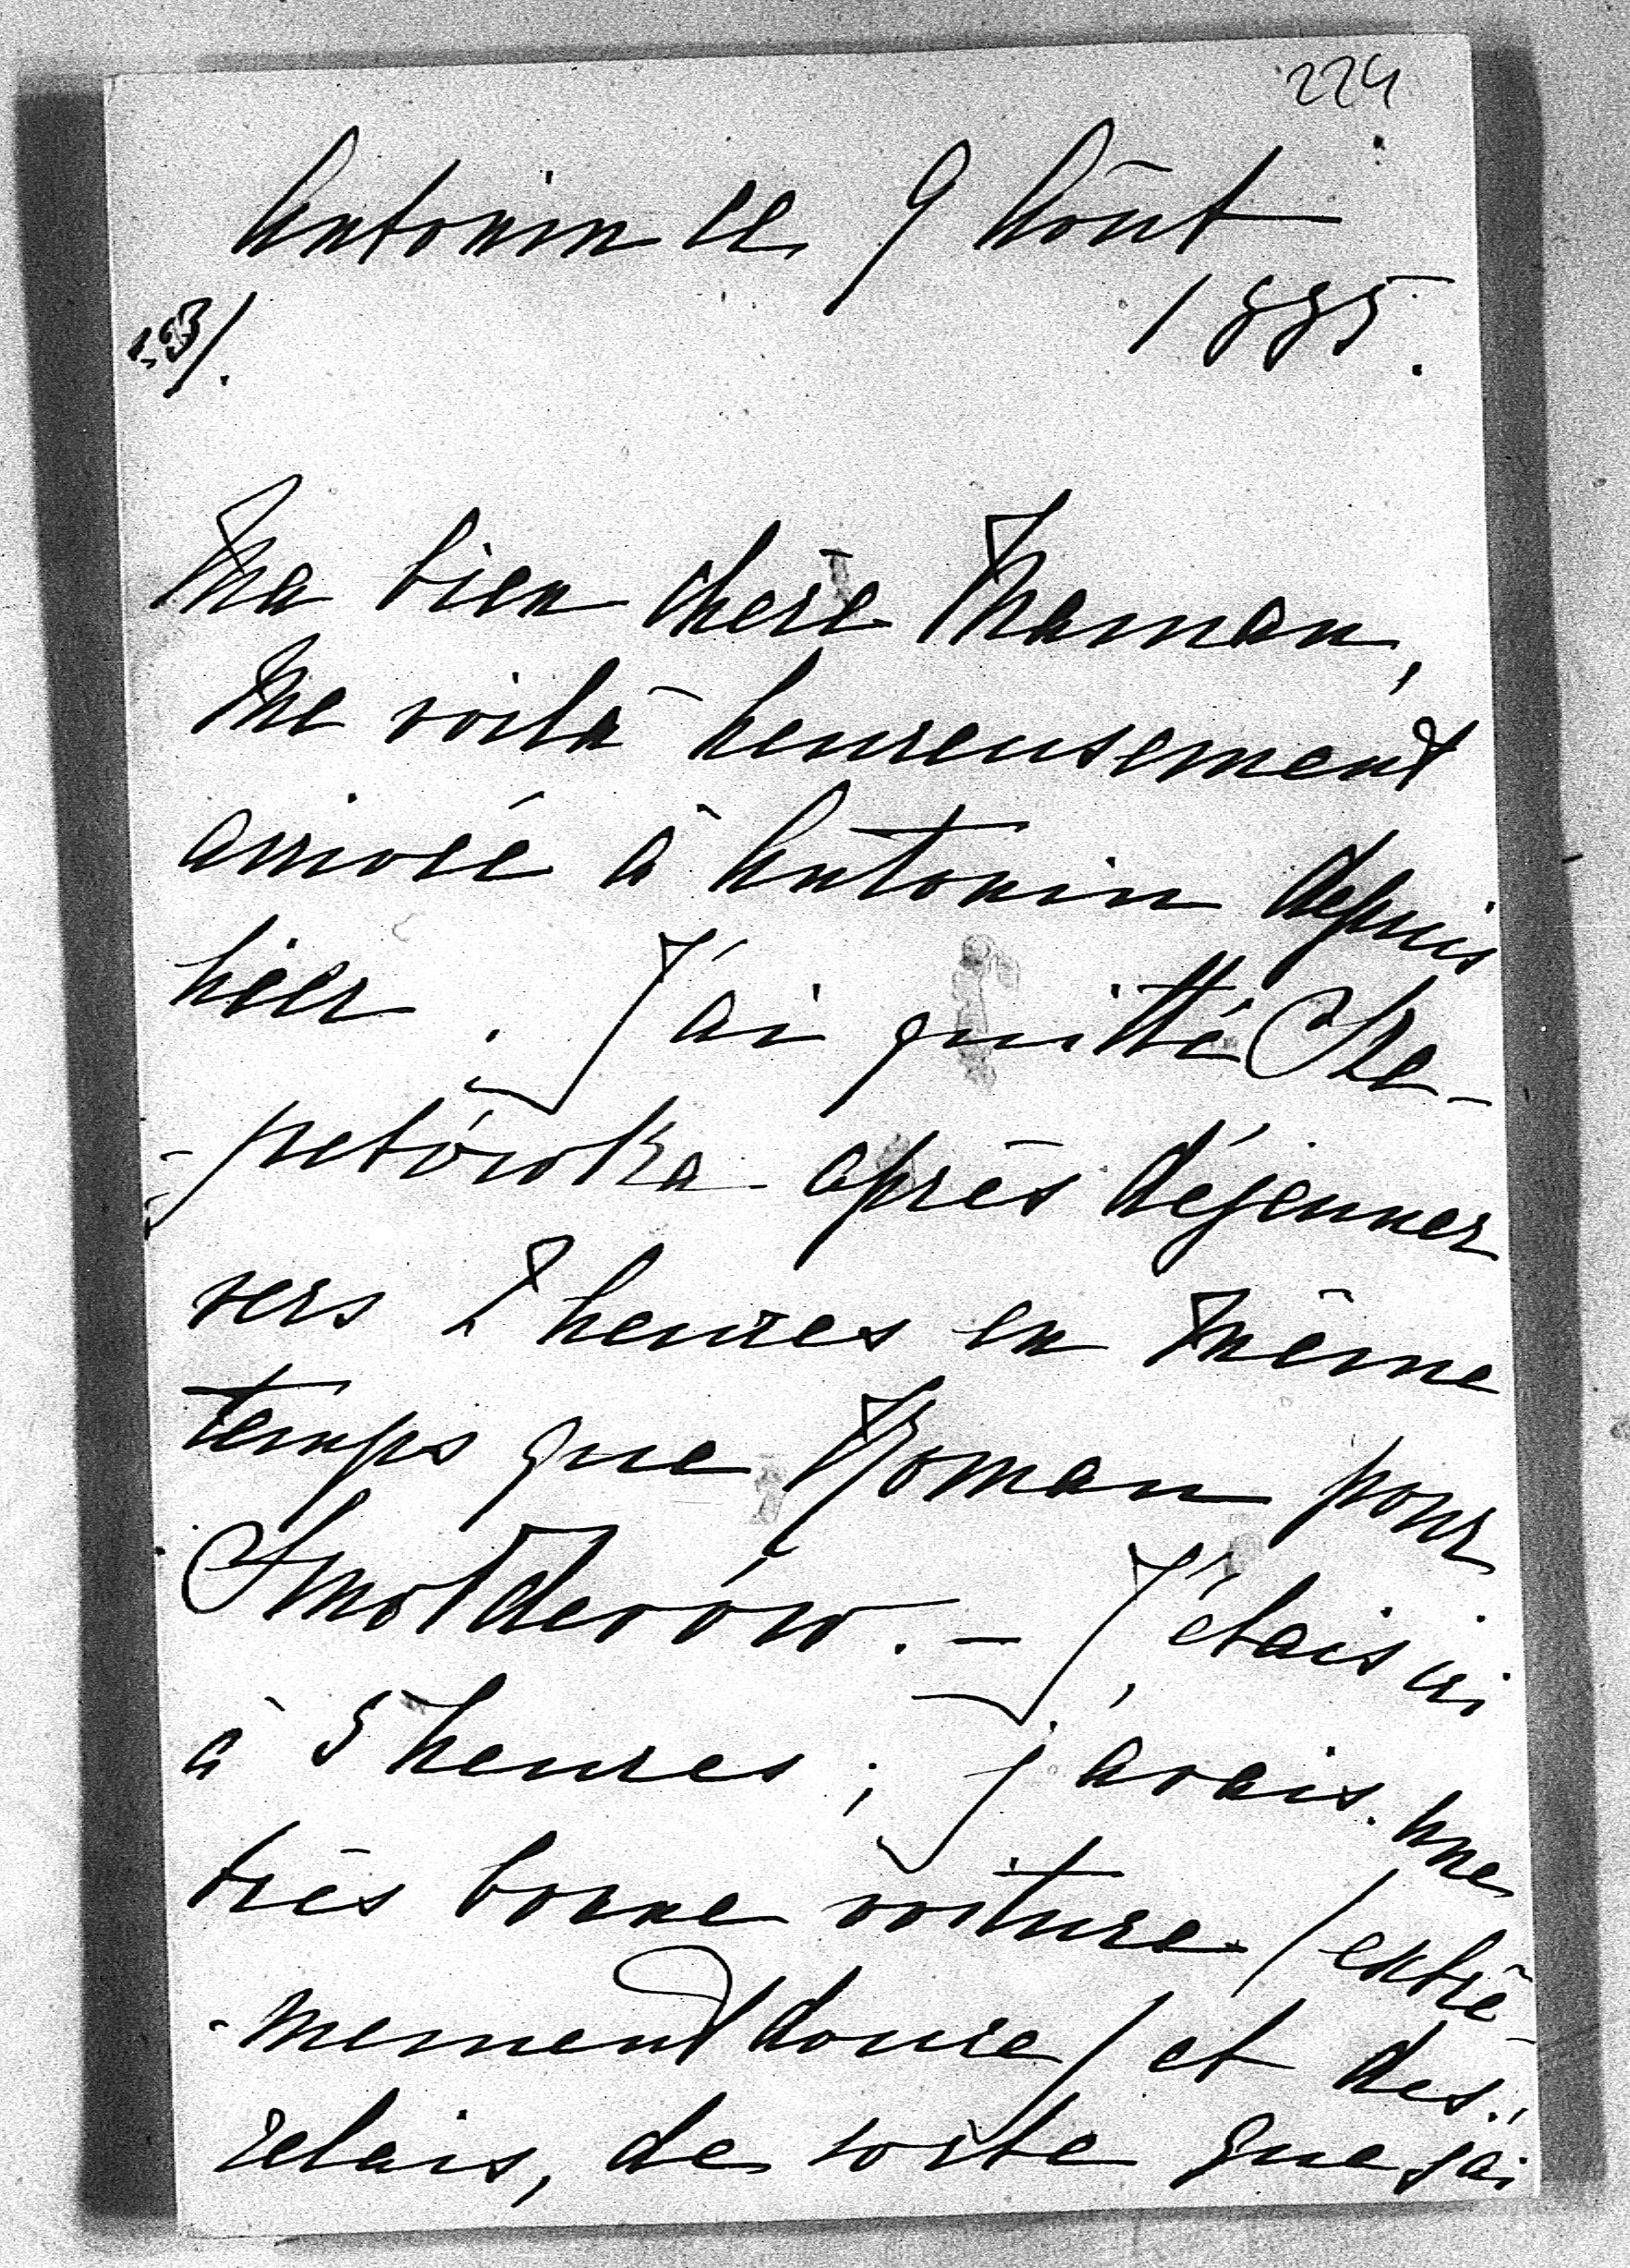 224
Antonin ce 9 Août
1885.
23/.
Ma bien chère Maman,
Me voilà heureusement
arrivée à Antonin depuis
hier. J'ai quitté Che-
-petówka après déjeuner
vers 2 heures en même
temps que Roman pour
Smołderów. — J'étais ici
à 5 heures; j'avais une
très bonne voiture /extrê-
-mement douce/ et des
relais, de sorte que j'ai